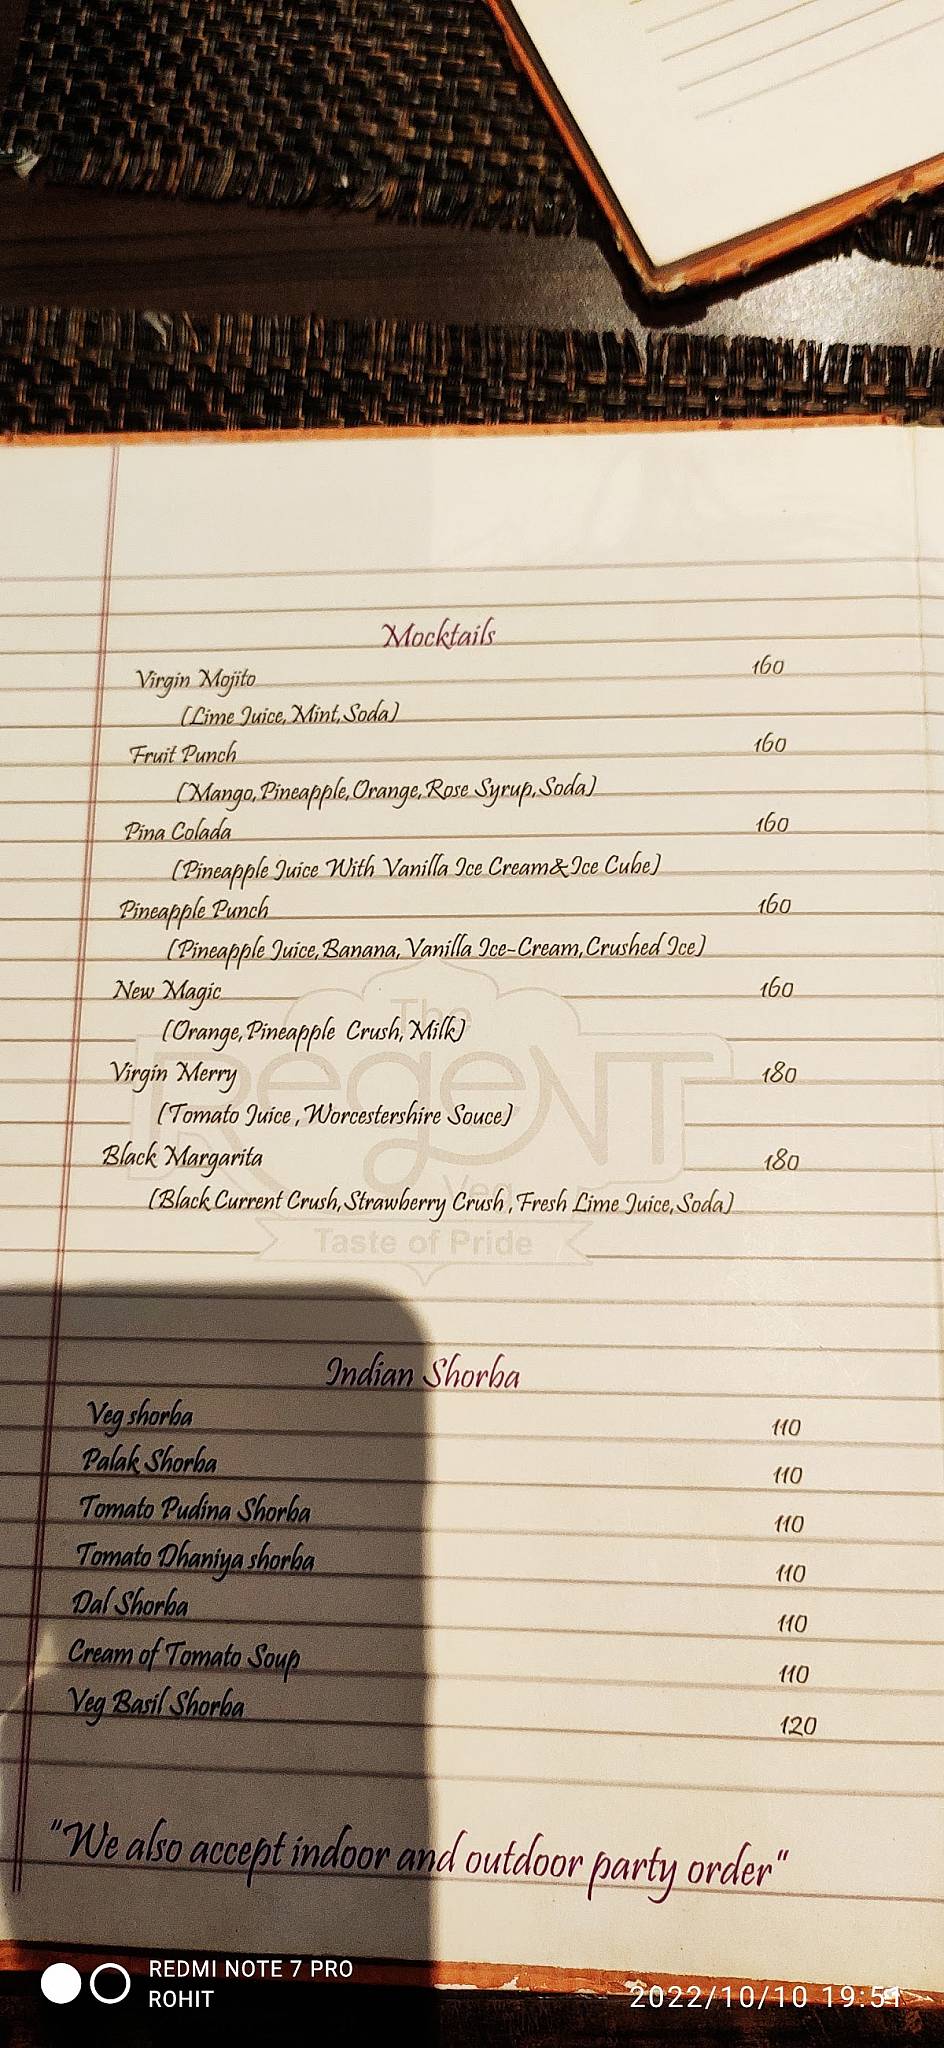 Mocktails
Virgin Mojito 160
(Lime Juice,Mint,Soda)
Fruit Punch 160
(Mango,Pineapple,Orange,Rose Syrup,Soda)
Pina Colada 160
(Pineapple Juice With Vanilla Ice Cream&Ice Cube)
Pineapple Punch 160
(Pineapple Juice,Banana,Vanilla Ice-Cream,Crushed Ice)
New Magic 160
(Orange,Pineapple Crush,Milk)
The
Regent
Virgin Merry 180
(Tomato Juice,Worcestershire Souce)
Black Margarita 180
Veg
(Black Current Crush,Strawberry Crush,Fresh Lime Juice,Soda)
Taste of Pride
Indian Shorba
Veg shorba 110
Palak Shorba 110
Tomato Pudina Shorba 110
Tomato Dhaniya shorba 110
Dal Shorba 110
Cream of Tomato Soup 110
Veg Basil Shorba 120
"We also accept indoor and outdoor party order"
REDMI NOTE 7 PRO
ROHIT
2022/10/10 19:51